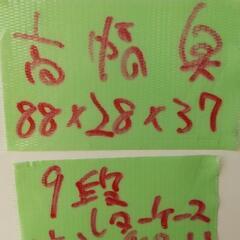 高 幅 奥
88×28×37
9段
レターケース